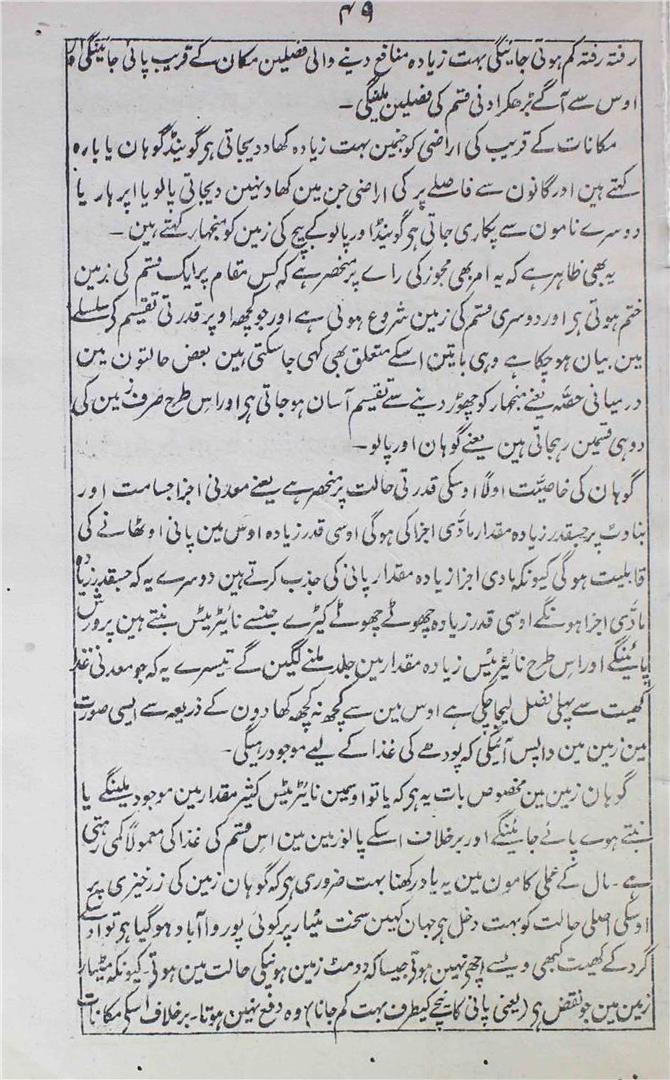 ۴۹
رفتہ رفتہ کم ہوتی جائینگی بہت زیادہ منافع دینے والی فصلین مکان کے قریب پائی جائینگی اور
اوس سے آگے بڑھکر ادنی قسم کی فصلین ملینگی ۔
مکانات کے قریب کی اراضی کو جنمین بہت زیادہ کھاد دیجاتی ہر گوینڈ گوہان یا بارہ
کہتے ہین اور گانون سے فاصلے پر کی اراضی جن مین کھاد نہین دیجاتی پالو یا اپر ہار یا
دوسرے نامون سے پکاری جاتی ہر گوینڈ اور پالو کے بیچ کی زمین کو منجھار کہتے ہین ۔
یہ بھی ظاہر ہے کہ یہ امر بھی مجوز کی راے پر منحصر ہے کہ کس مقام پر ایک قسم کی زمین
ختم ہوتی ہر اور دوسری قسم کی زمین شروع ہوتی ہے اور جو کچھ اوپر قدرتی تقسیم کے سلسلے
مین بیان ہو چکا ہے وہی باتین اسکے متعلق بھی کہی جا سکتی ہین بعض حالتون مین
درمیانی حصّہ یعنے منجھار کو چھوڑ دینے سے تقسیم آسان ہو جاتی ہر اور اس طرح صرف زمین کی
دو ہی قسمین رہجاتی ہین یعنے گوہان اور پالو ۔
گوہان کی خاصیّت اولاً اوسکی قدرتی حالت پر منحصر ہے یعنے معدنی اجزا جسامت اور
بناوٹ پر جسقدر زیادہ مقدار مادّی اجزا کی ہوگی اوسی قدر زیادہ اوس مین پانی اوٹھانے کی
قابلیت ہوگی کیونکہ مادی اجزا زیادہ مقدار پانی کی جذب کرتے ہین دوسرے یہ کہ جسقدر زیادہ
مادّی اجزا ہونگے اوسی قدر زیادہ چھوٹے چھوٹے کیڑے جنسے نائیٹریٹس بنتے ہین پرورش
پائینگے اور اس طرح نائیٹریٹس زیادہ مقدار مین جلد ملنے لگین گے تیسرے یہ کہ جو معدنی غذا
کھیت سے پہلی فصل لیجا چکی ہے اوس مین سے کچھ نہ کچھ کھادون کے ذریعہ سے ایسی صورت
مین زمین مین واپس آئیگی کہ پودھے کی غذا کے لیے موجود رہیگی ۔
گوہان زمین مین مخصوص بات یہ ہر کہ یا تو اوسمین نائیٹریٹس کثیر مقدار مین موجود ملینگے یا
بنتے ہوے پائے جائینگے اور برخلاف اسکے پالو زمین مین اس قسم کی غذا کی معمولاً کمی رہتی
ہے ۔ مال کے عملی کامون مین یہ یاد رکھنا بہت ضروری ہر کہ گوہان زمین کی زرخیزی پر
اوسکی اصلی حالت کو بہت دخل ہر جہان کہین سخت مٹیار پر کوئی پوروا آباد ہو گیا ہر تو اوسکے
گرد کے کھیت کبھی ویسے اچھے نہین ہوتے جیسا کہ دومٹ زمین ہونیکی حالت مین ہوتے ۔ کیونکہ مٹیار
زمین مین جو نقص ہر (یعنی پانی کا نیچے کیطرف بہت کم جانا) وہ دفع نہین ہوتا ۔ برخلاف اسکے مکانات